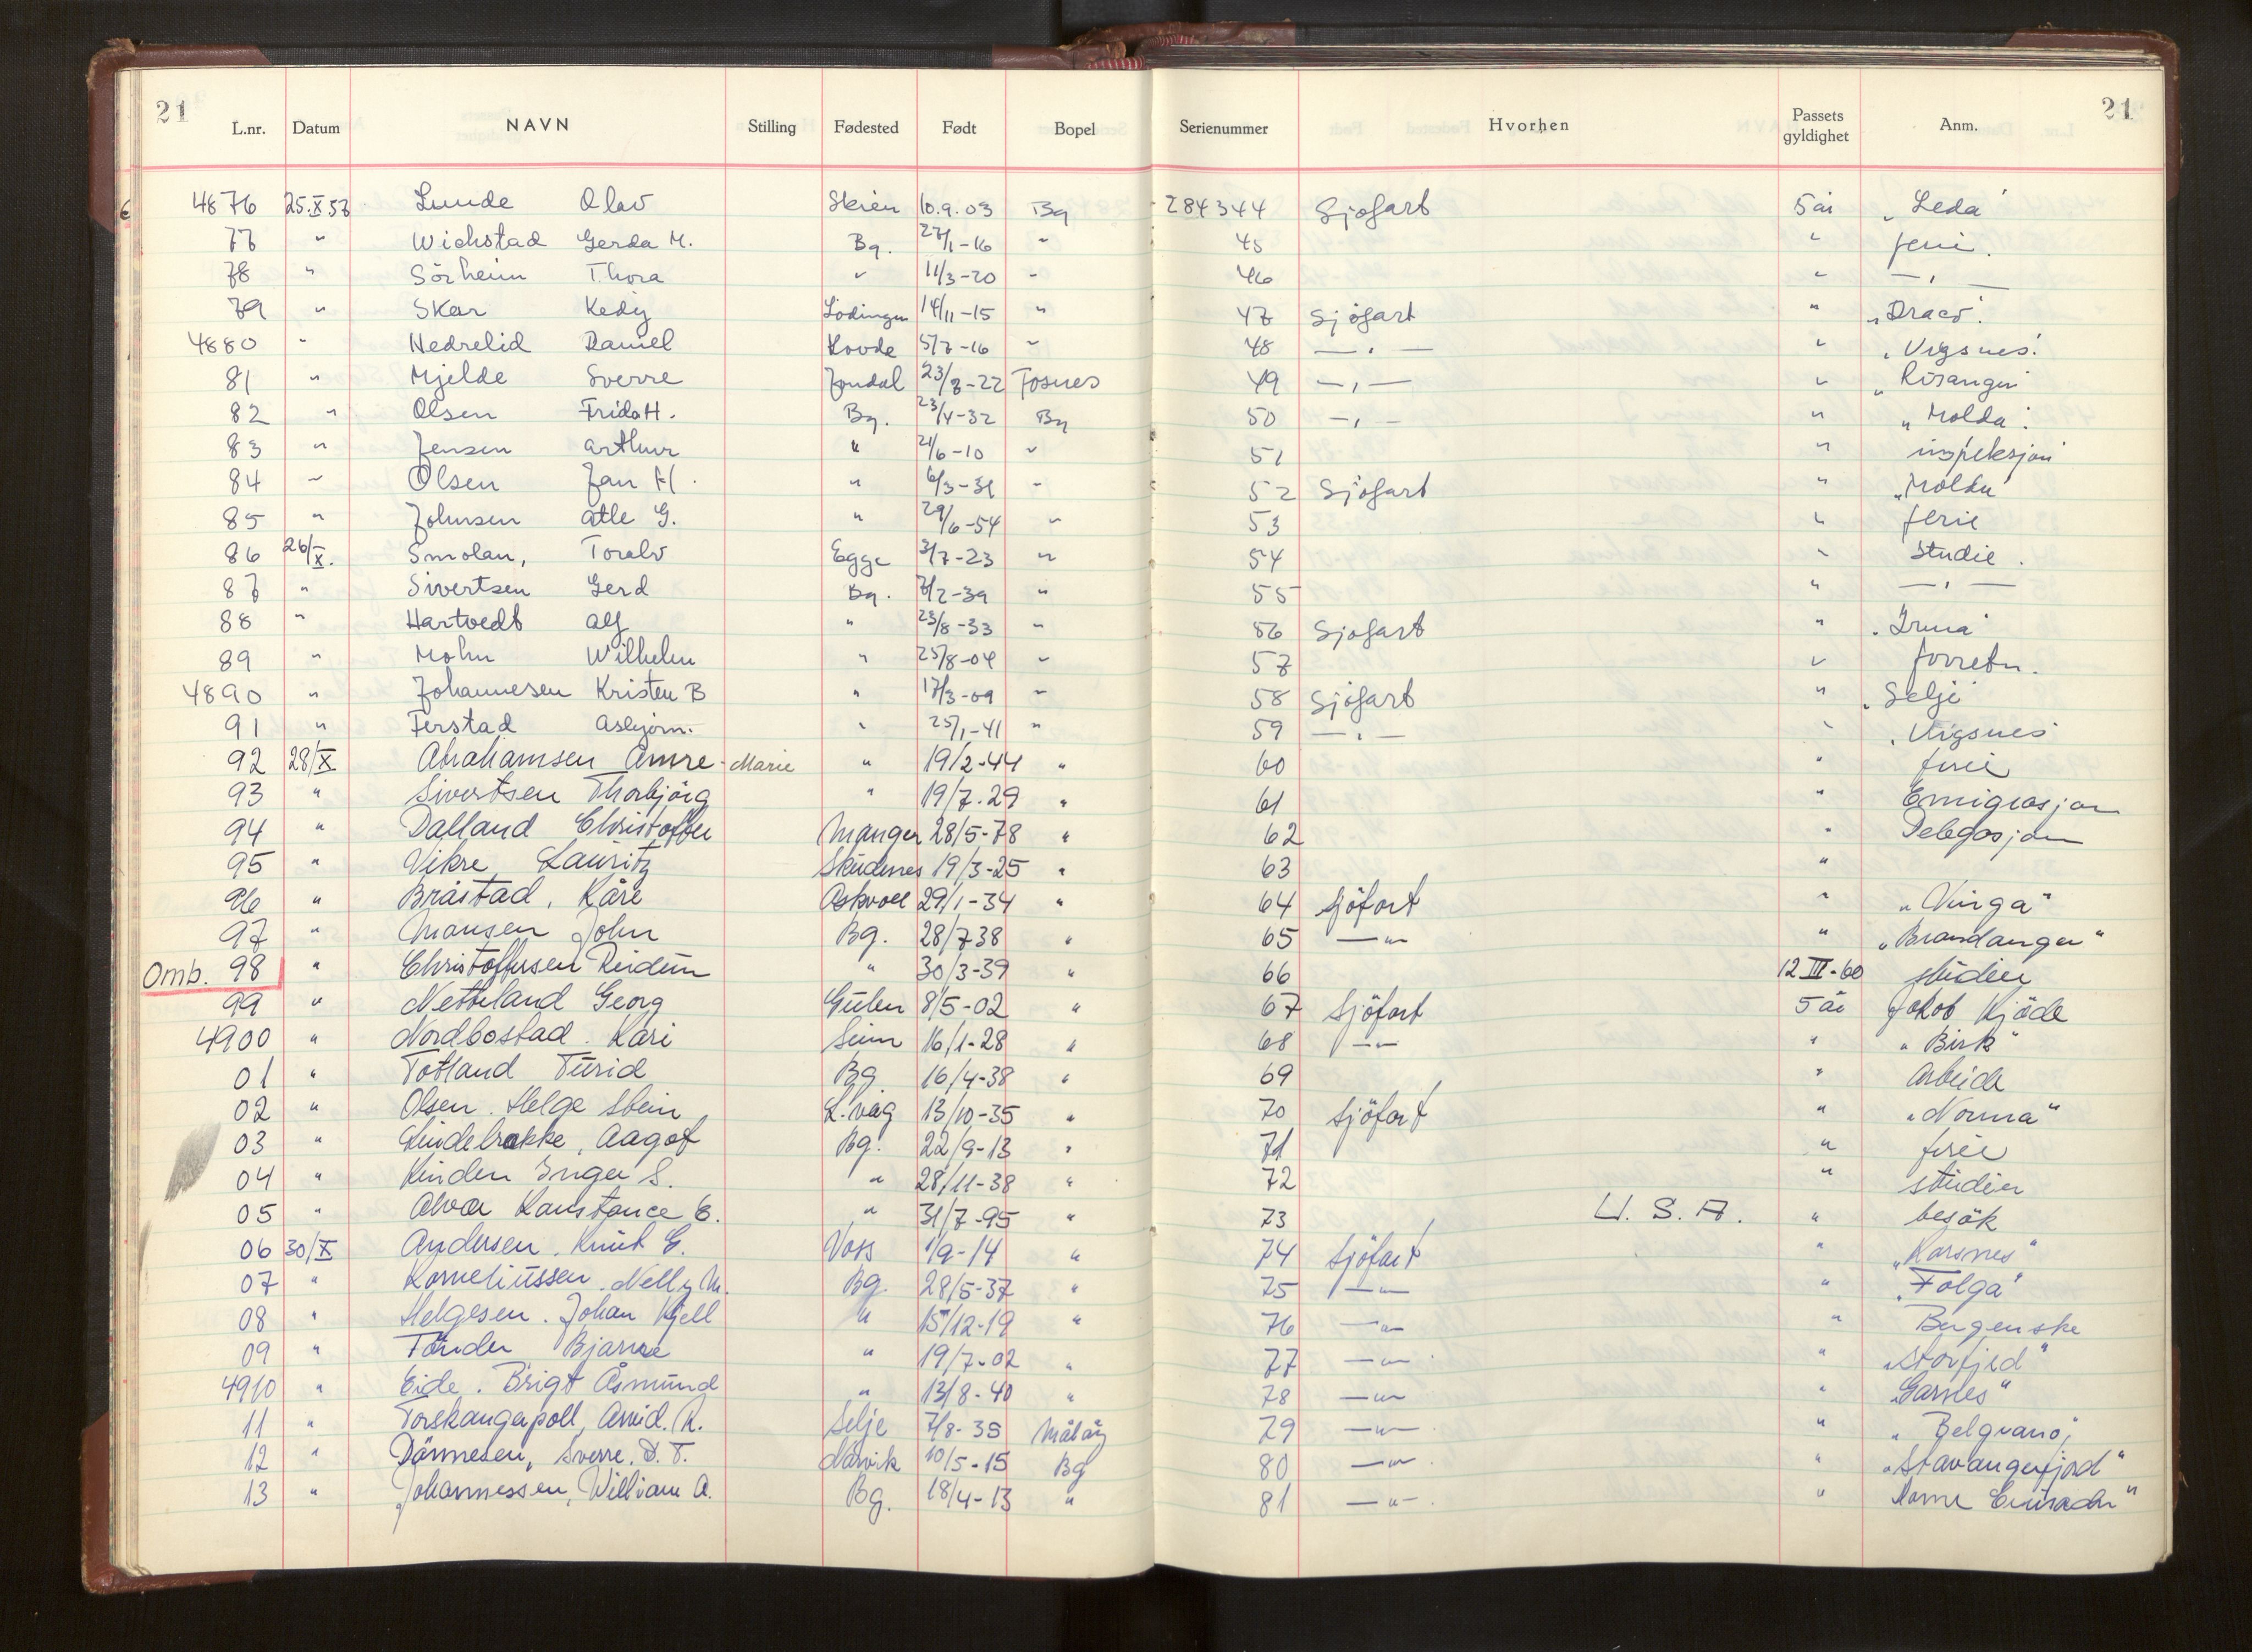 21 21
L.nr. Datum NAVN Stilling Fødested Født Bopel Serienummer Hvorhen Passets gyldighet Anm.
4876 25.X.57 Lunde Olav Skien 10.9.03 Bg 284344 Sjøfart 5 år "Leda"
77 " Wichstad Gerda M. Bg. 27/1-16 " 45 " ferie.
78 " Sörheim Thora " 11/3-20 " 46 " — " —
79 " Skar Kedij Lödingen 14/11-15 " 47 Sjøfart " "Draco".
4880 " Nedrelid Daniel Hovde 5/7-16 " 48 — " — " "Vigsnes".
81 " Mjelde Sverre Jondal 23/8-22 Fosnes 49 — " — " "Risanger"
82 " Olsen Frida H. Bg. 23/4-32 Bg 50 — " — " "Molda".
83 " Jensen Arthur " 21/6-10 " 51 " inspeksjon
84 " Olsen Jan H. " 6/3-31 " 52 Sjøfart " "Molda"
85 " Johnsen Atle G. " 29/6-54 " 53 " ferie
86 26/X. Smolan, Toralv Egge 3/7-23 " 54 " Studie.
87 " Sivertsen Gerd Bg. 7/2-39 " 55 " — " —
88 " Hartvedt Alf " 23/8-33 " 56 Sjøfart " "Irma"
89 " Mohn Wilhelm " 25/8-04 " 57 " forretn.
4890 " Johannesen Kristen B " 17/3-09 " 58 Sjøfart " "Selje"
91 " Ferstad Asbjørn. " 25/1-41 " 59 — " — " "Vigsnes"
92 28/X Abrahamsen Anne-Marie " 19/2-44 " 60 " ferie
93 " Sivertsen Thorbjörg " 19/7.29 " 61 " Emigrasjon
94 " Dalland Christoffer Manger 28/5-78 " 62 " Delegasjon
95 " Vikre Lauritz Skudenes 19/3-25 " 63 "
96 " Bråstad, Kåre Askvoll 29/1-34 " 64 Sjöfart " "Vinga"
97 " Monsen John Bg. 28/7 38 " 65 — " — " "Brandanger"
Omb. 98 " Christoffersen Reidun " 30/3-39 " 66 12 III-60 studier
99 " Netteland Georg Gulen 8/5-02 " 67 Sjöfart 5 år Jakob Kjöde
4900 " Nordbostad. Kari Seim 16/1-28 " 68 — " — " "Birk"
01 " Totland Turid Bg 16/4-38 " 69 " Arbeide
02 " Olsen. Helge Stein K. våg 13/10-35 " 70 Sjöfart " "Norma"
03 " Lindebrekke, Aagot Bg. 22/9-13 " 71 " ferie
04 " Kinden Inger S. " 28/11-38 " 72 " studier
05 " Alver Konstance E. " 31/7-95 " 73 U. S. A. " besök
06 30/X Andersen. Knut G. Voss 1/9-14 " 74 Sjöfart " "Korsnes"
07 " Korneliussen. Nelly M. Bg. 28/5-37 " 75 — " — " "Folga"
08 " Helgesen. Johan Kjell " 15/12-19 " 76 — " — " Bergenske
09 " Tönder Bjarne " 19/7-02 " 77 — " — " "Storfjeld"
4910 " Eide. Brigt Åsmund " 13/8-40 " 78 — " — " "Garnes"
11 " Torskangerpoll, Arvid. R. Selje 7/8-35 Måløy 79 — " — " "Belgrano"
12 " Dönnesen, Sverre. D. T. Narvik 10/5-15 Bg 80 — " — " "Stavangerfjord"
13 " Johannessen, William A. Bg. 18/4-13 " 81 — " — "